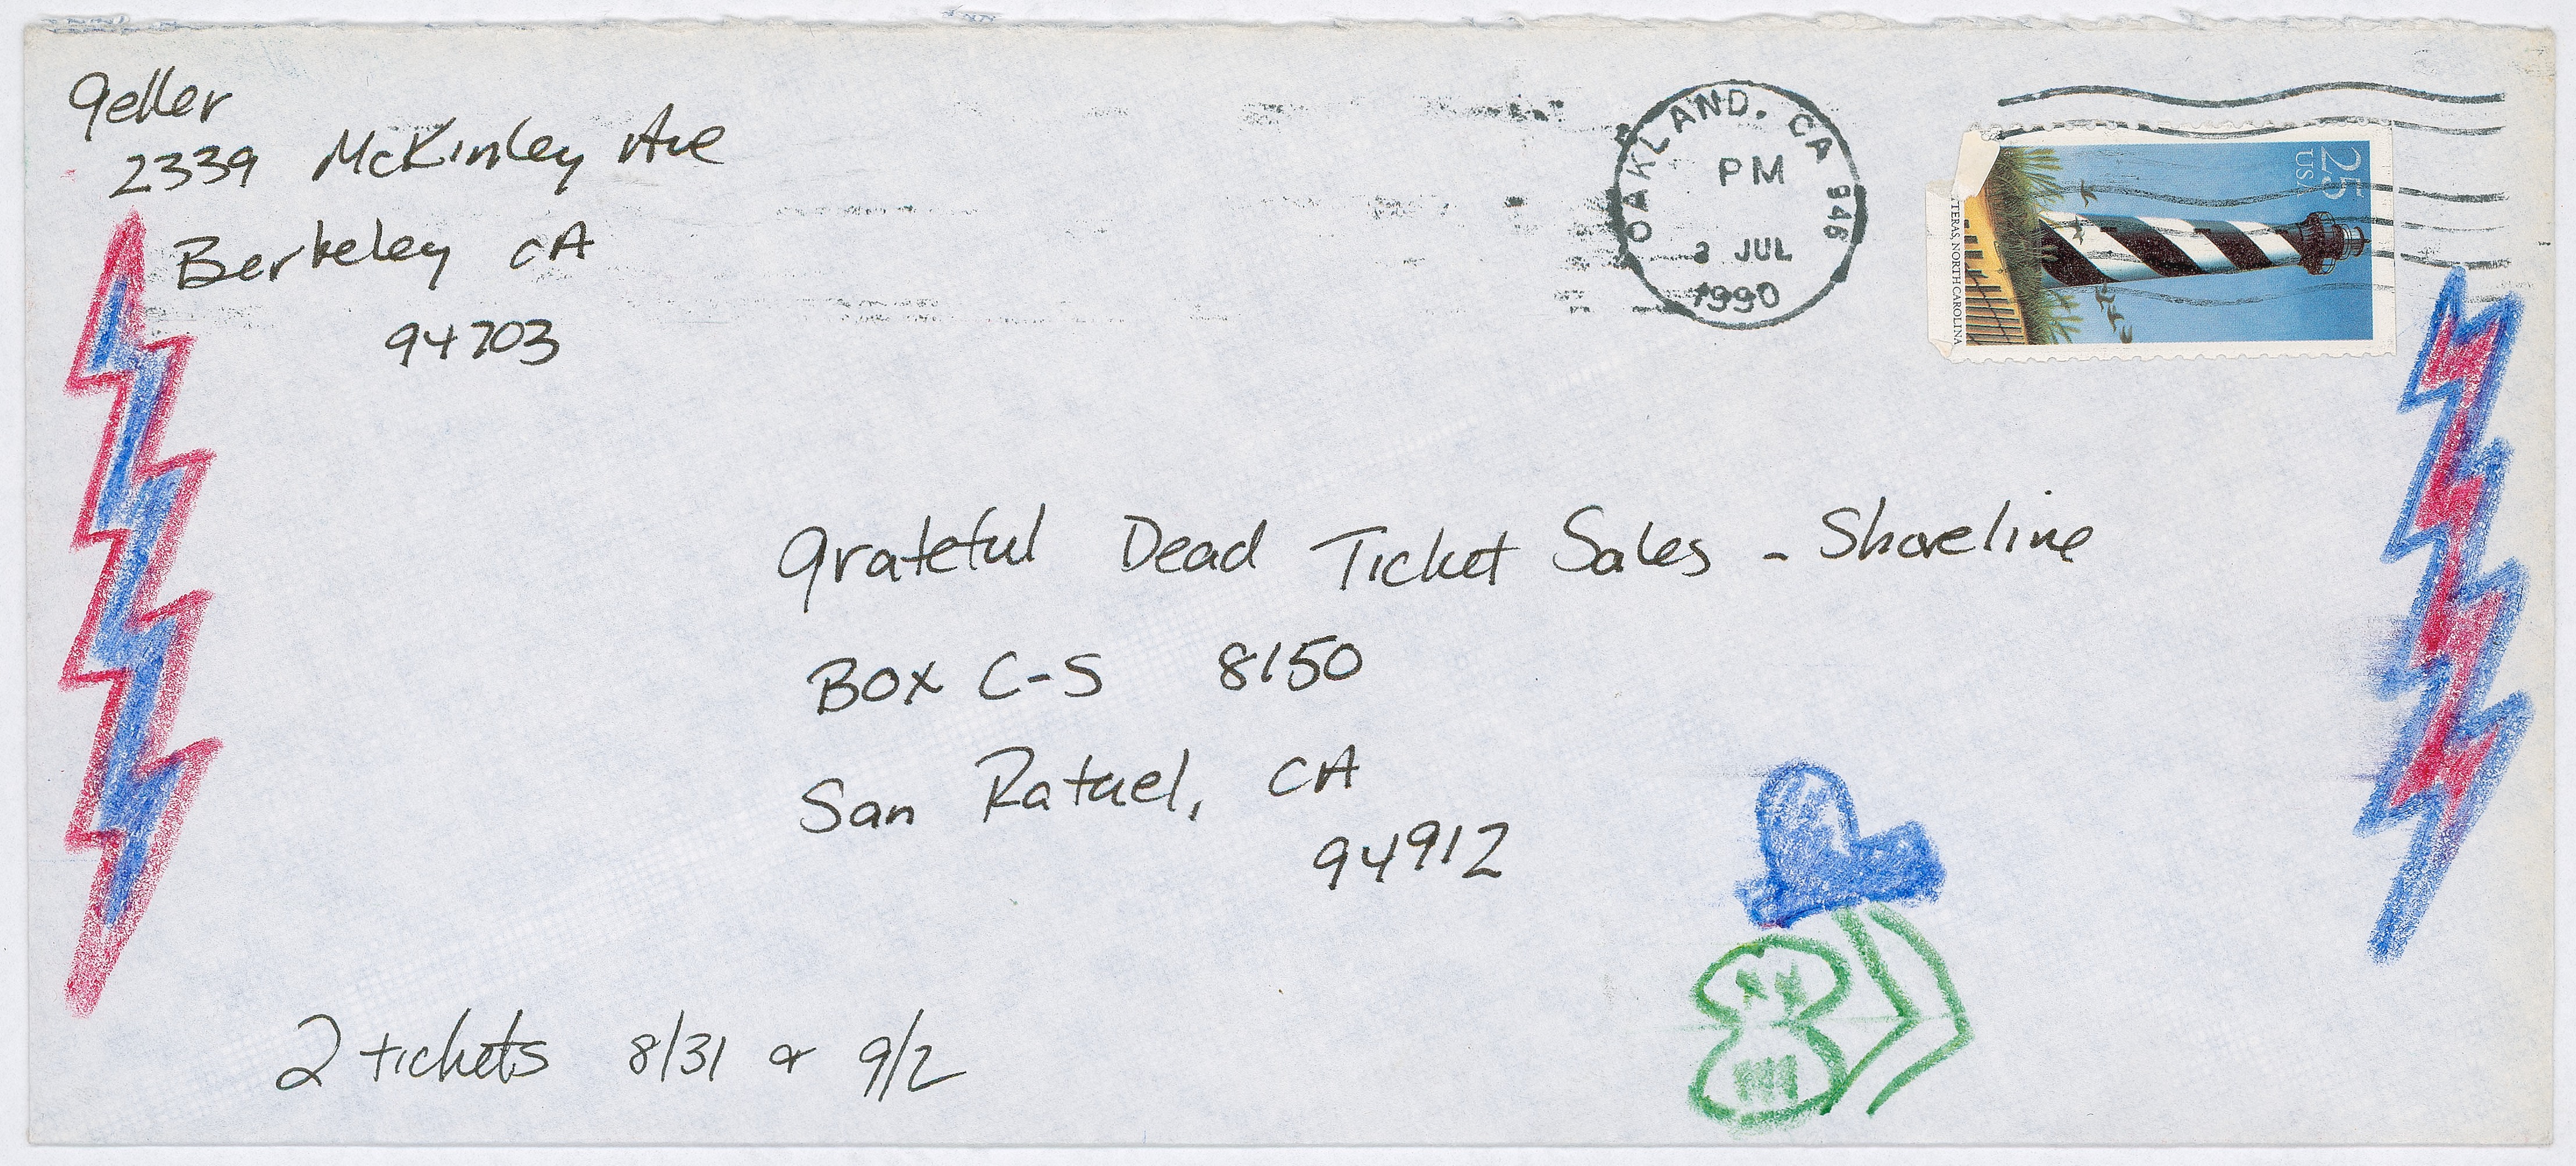 Geller
2339 McKinley Ave
Berkeley CA
94703
OAKLAND, CA 946
PM
JUL
1990
25
USA
TERAS, NORTH CAROLINA
Grateful Dead Ticket Sales - Shoreline
Box C-S 8150
San Rafael, CA
94912
2 tickets 8/31 & 9/2